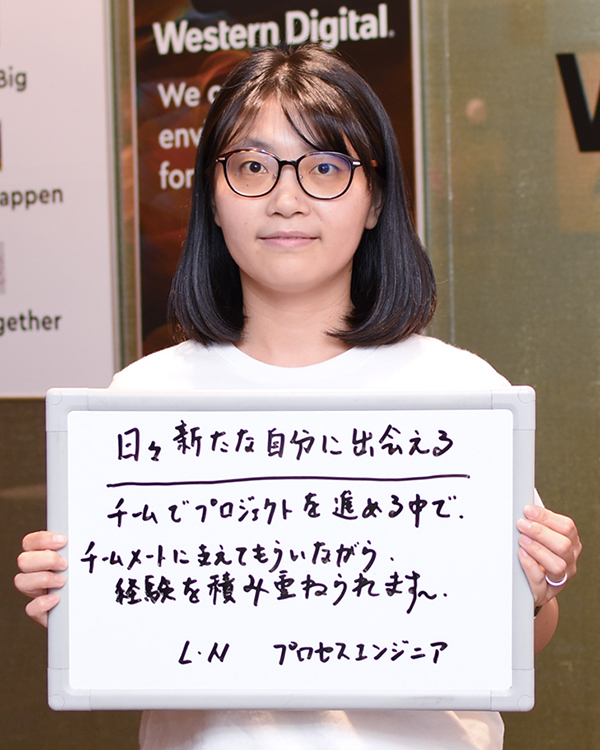 Big
appen
gether
Western Digital
We c
env
for
W
日々新たな自分に出会える
チームでプロジェクトを進める中で、
チームメートに支えてもらいながら、
経験を積み重ねられます。
L・N プロセスエンジニア